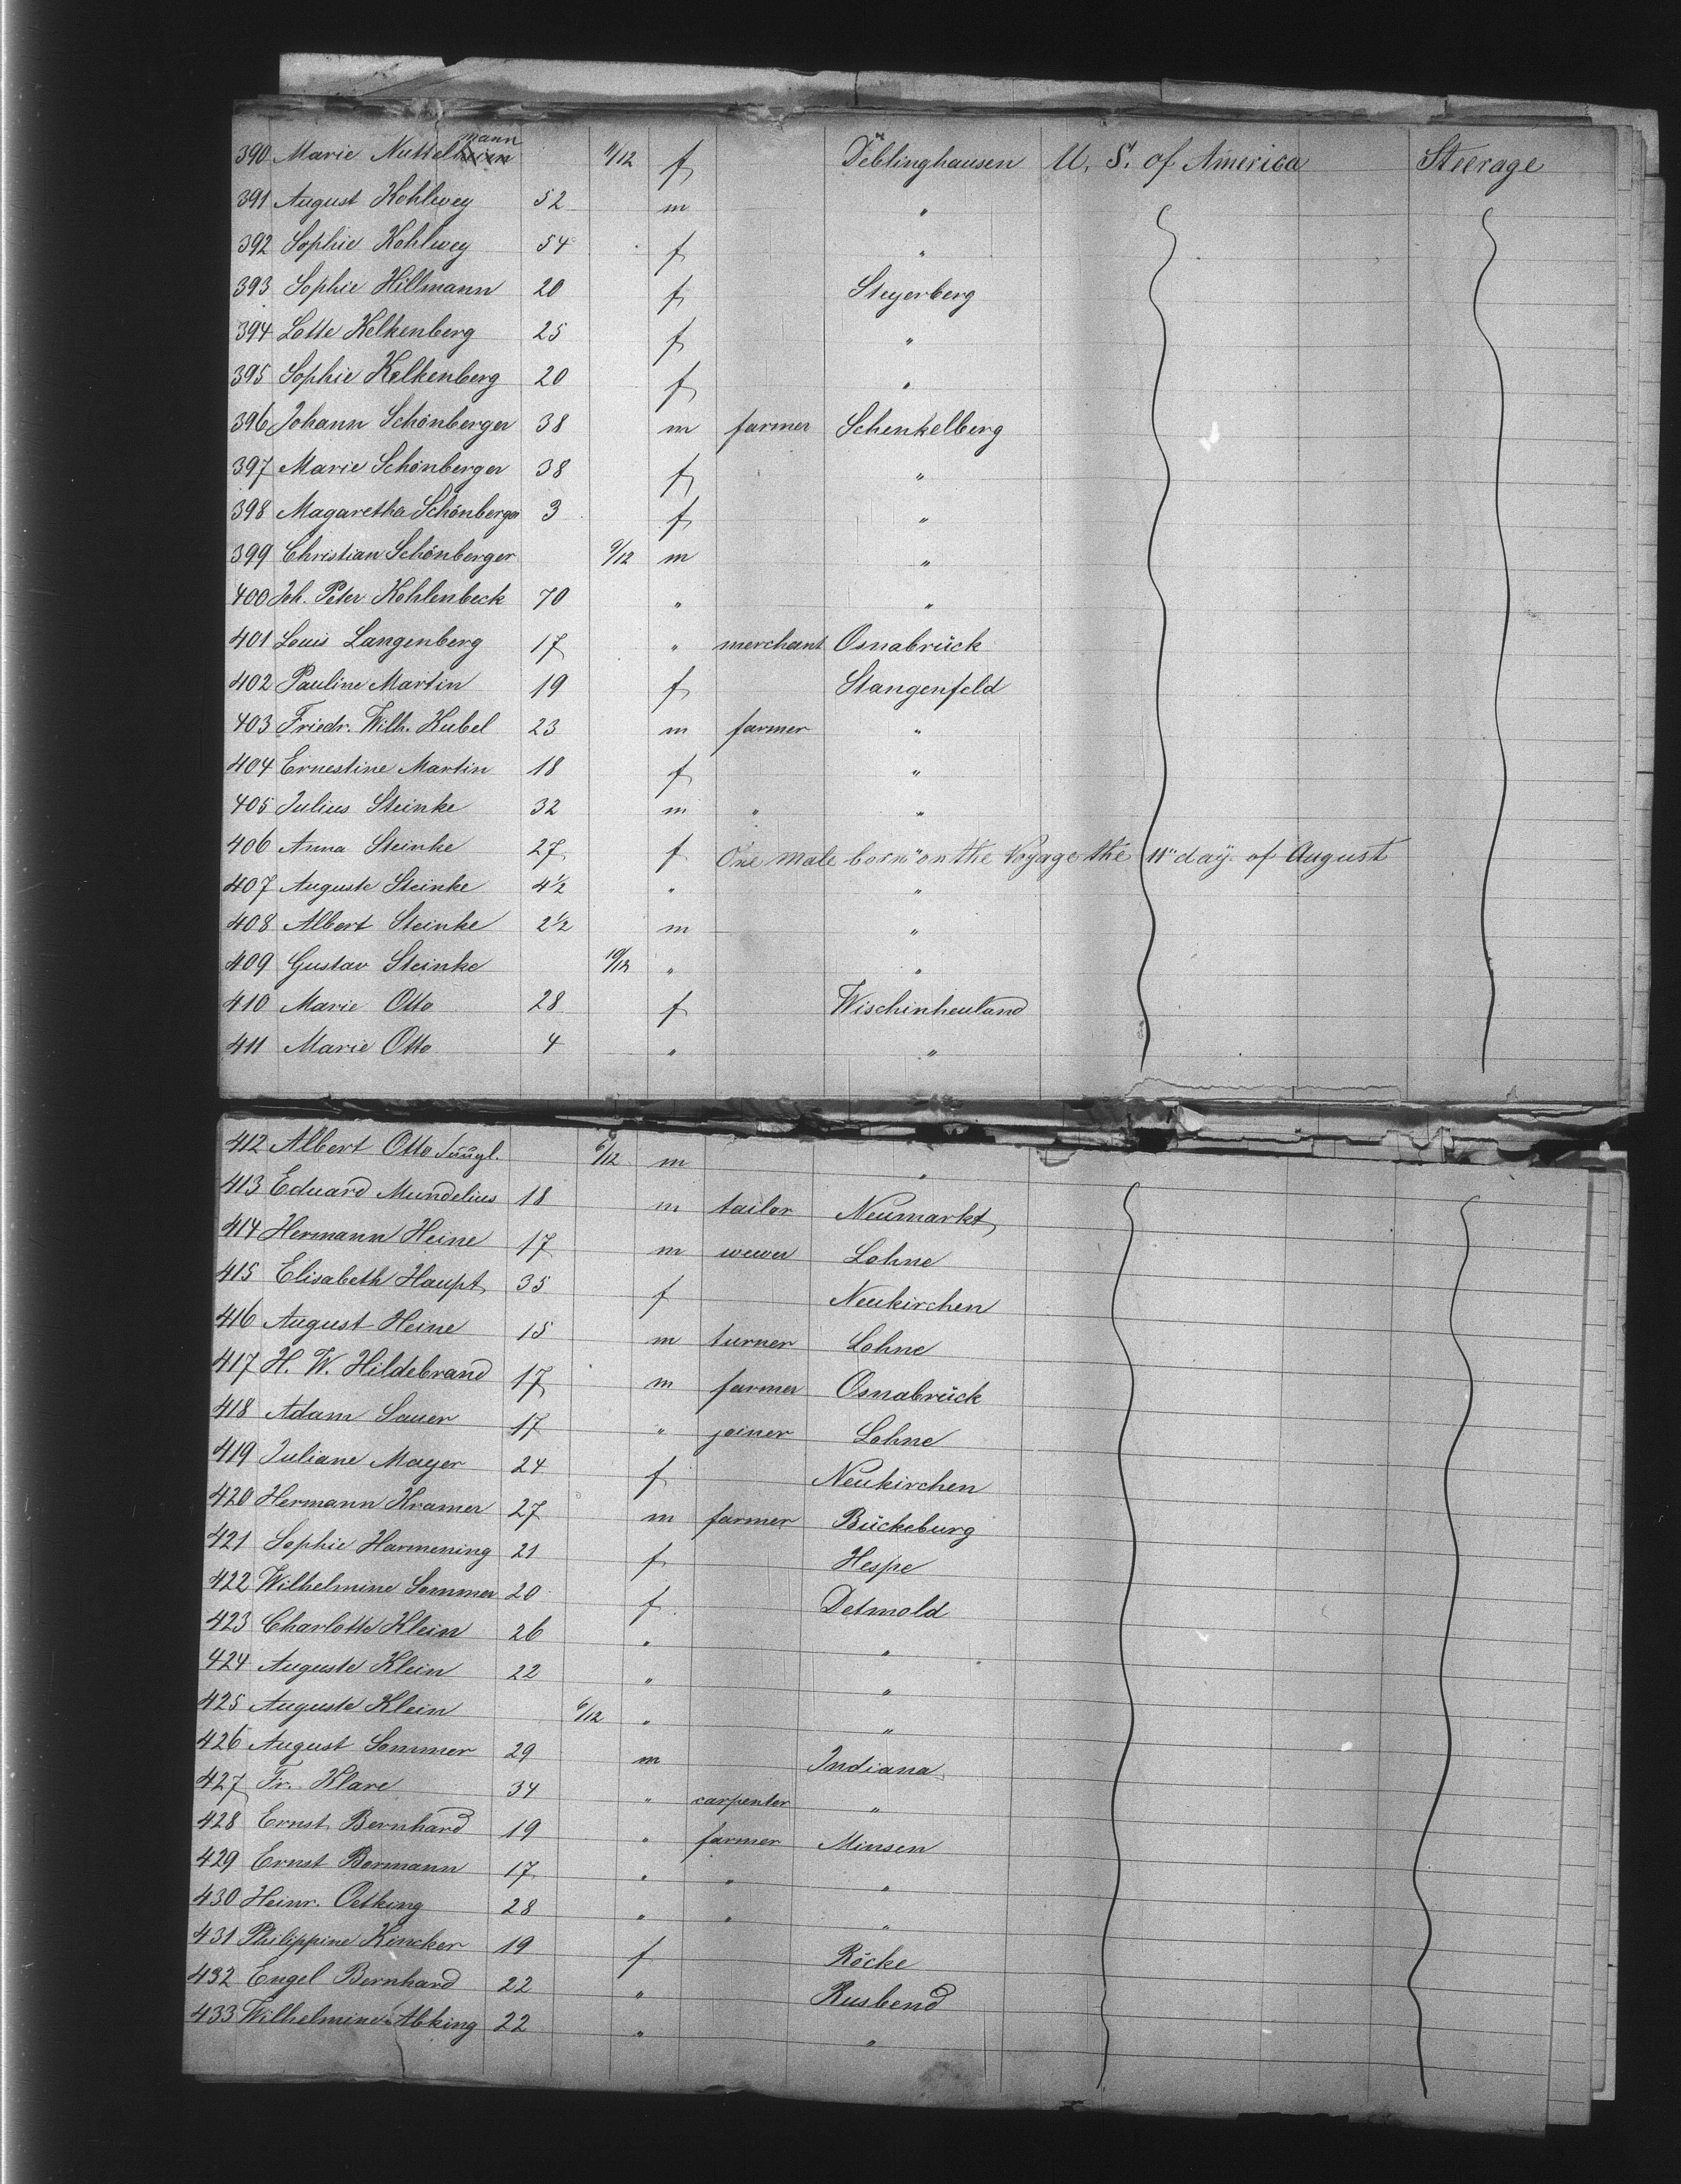 390 Marie Nuttelmann 11/12 f Deblinghausen U. S. of America Steerage
391 August Kohlwey 52 m "
392 Sophie Kohlwey 54 f "
393 Sophie Hillmann 20 f Steyerberg
394 Lotte Kelkenberg 25 f "
395 Sophie Kelkenberg 20 f "
396 Johann Schönberger 38 m farmer Schenkelberg
397 Marie Schönberger 38 f "
398 Magaretha Schönberger 3 f "
399 Christian Schönberger 9/12 m "
400 Joh. Peter Kohlenbeck 70 " "
401 Louis Langenberg 17 " merchant Osnabrück
402 Pauline Martin 19 f Stangenfeld
403 Friedr. Wilh. Kubel 23 m farmer "
404 Ernestine Martin 18 f "
405 Julius Steinke 32 m " "
406 Anna Steinke 27 f One male born " on the Voyage the 11th day of August
407 Auguste Steinke 4½ " "
408 Albert Steinke 2½ m "
409 Gustav Steinke 10/12 " "
410 Marie Otto 28 f Wischinheuland
411 Marie Otto 4 " "
412 Albert Otto Säugl. 6/12 m "
413 Eduard Mundelius 18 m tailor Neumarkt
414 Hermann Heine 17 m wewer Lohne
415 Elisabeth Haupt 35 f Neukirchen
416 August Heine 15 m turner Lohne
417 H. W. Hildebrand 17 m farmer Osnabrück
418 Adam Sauer 17 " joiner Lohne
419 Juliane Mayer 24 f Neukirchen
420 Hermann Kramer 27 m farmer Bückeburg
421 Sophie Harmening 21 f Hespe
422 Wilhelmine Sommer 20 f Detmold
423 Charlotte Klein 26 " "
424 Auguste Klein 22 " "
425 Auguste Klein 6/12 " "
426 August Sommer 29 m Indiana
427 Fr. Klare 34 " carpenter "
428 Ernst Bernhard 19 " farmer Minsen
429 Ernst Bormann 17 " " "
430 Heinr. Oetking 28 " " "
431 Philippine Kincker 19 f Röcke
432 Engel Bernhard 22 " Rusbend
433 Wilhelmine Abking 22 " "